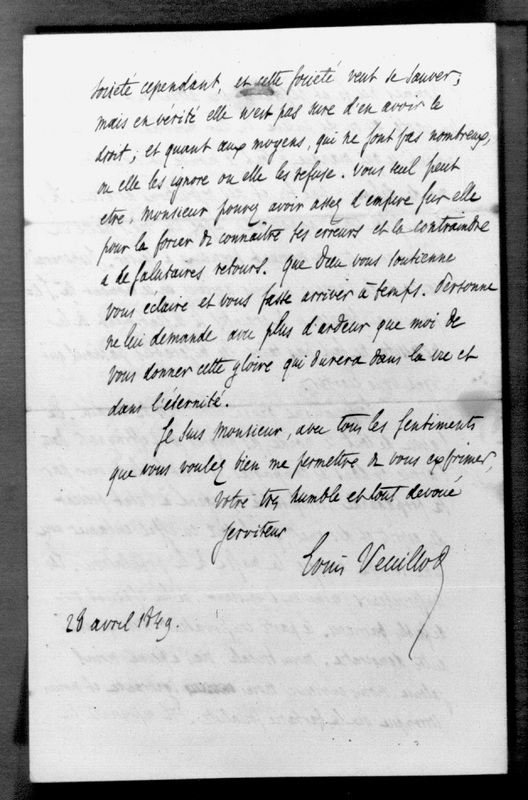 société cependant, et cette société veut se sauver;
mais en vérité elle n'est pas sure d'en avoir le
droit; et quant aux moyens, qui ne sont pas nombreux,
ou elle les ignore ou elle les refuse. Vous seul peut
etre, Monsieur pouvez avoir assez d'empire sur elle
pour la forcer de connaître ses erreurs et la contraindre
a de salutaires retours. Que Dieu vous soutienne
vous eclaire et vous fasse arriver à temps. Personne
ne lui demande avec plus d'ardeur que moi de
vous donner cette gloire qui durera dans la vie et
dans l'éternité.
Je suis Monsieur, avec tous les sentiments
que vous voulez bien me permettre de vous exprimer,
votre très humble et tout devoué
serviteur
Louis Veuillot
28 avril 1849.